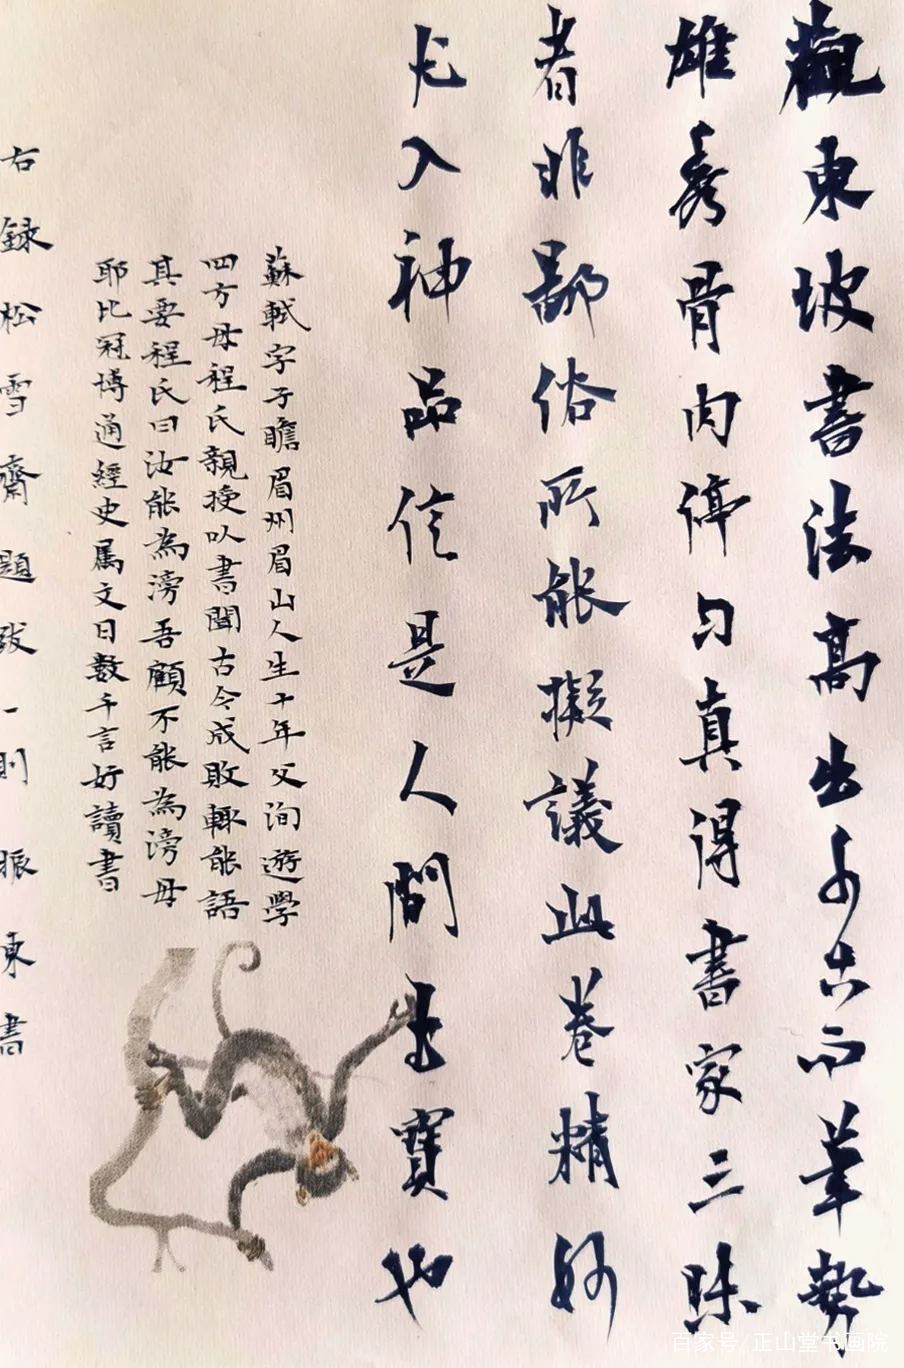 觀東坡書法高出千古而筆勢
雄秀骨肉停勻真得書家三昧
者非鄙俗所能擬議此卷精妙
尤入神品信是人間至寶也
蘇軾字子瞻眉州眉山人生十年父洵遊學
四方母程氏親授以書聞古今成敗輒能語
其要程氏曰汝能為滂吾顧不能為滂母
耶比冠博通經史属文日數千言好讀書
右録松雪齋題跋一則振東書
百家号/正山堂书画院